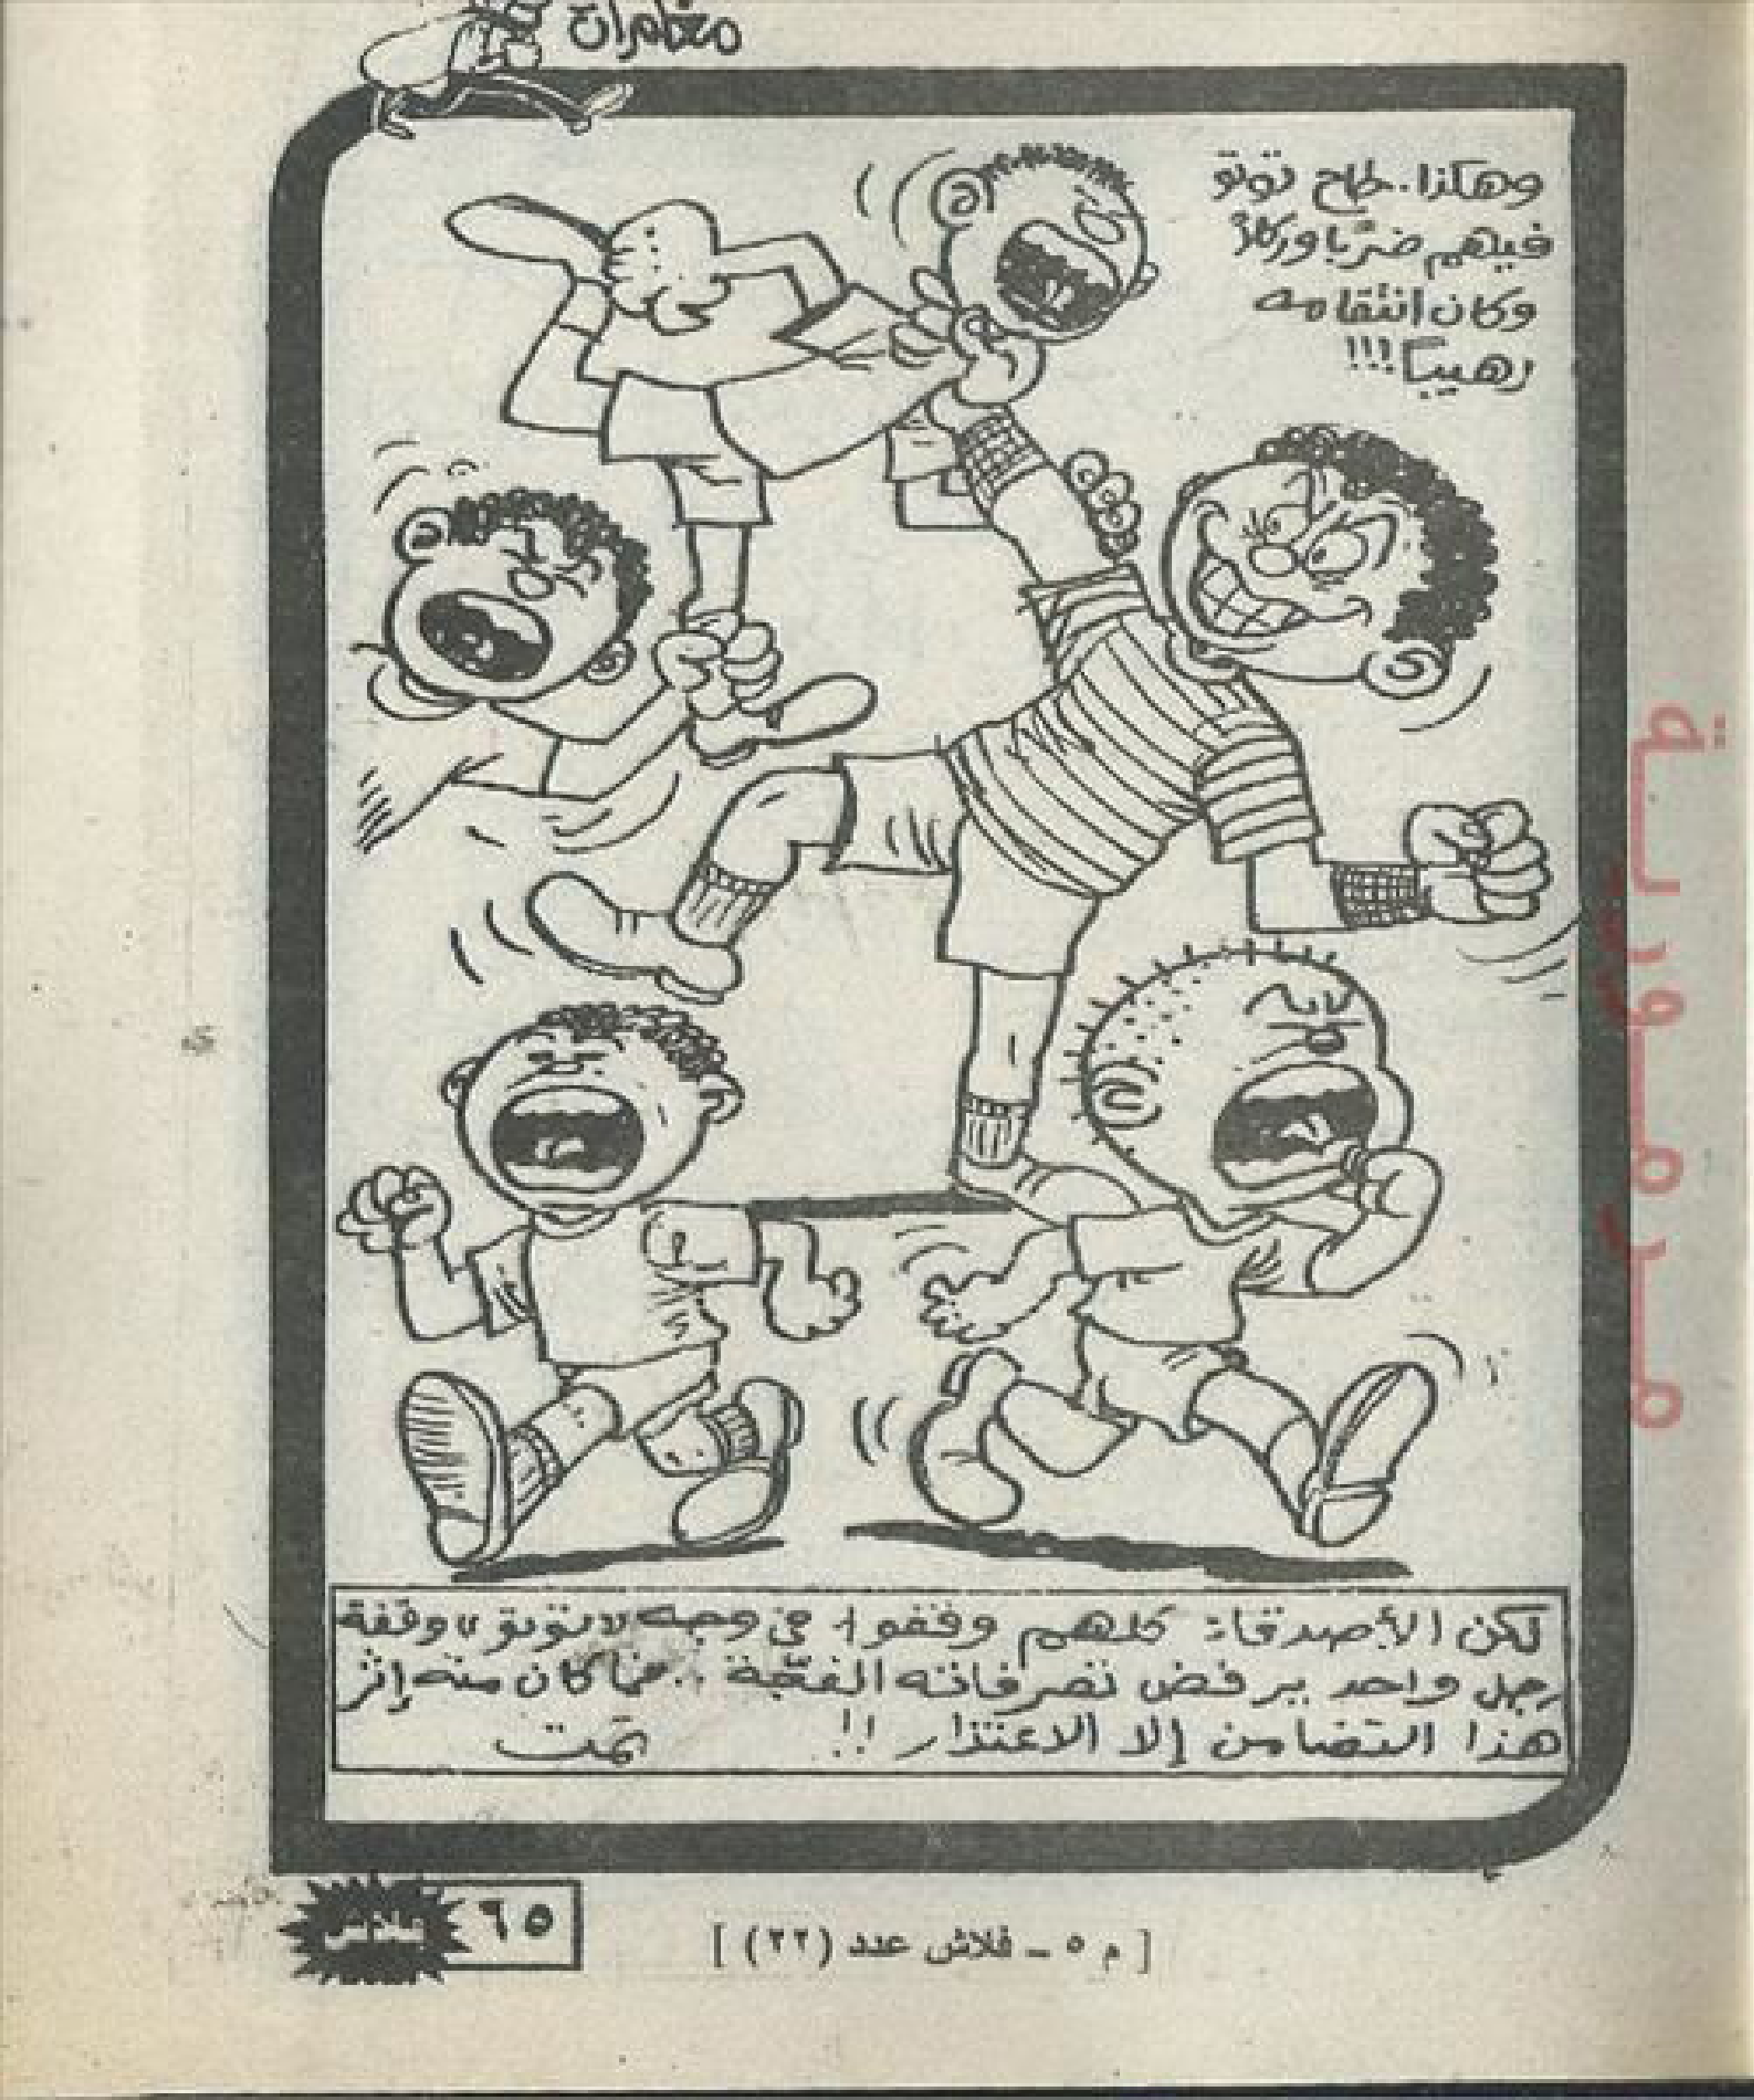 مغامرات
وهكذا.. طاح توتو
فيهم ضربًا وركلاً
وكان انتقامه
رهيبًا!!!
لكن الأصدقاء كلهم وقفوا في وجه «توتو» وقفة
رجل واحد يرفض تصرفاته الفجّة .. فما كان منه إثر
هذا التضامن إلا الاعتذار!! تمت
فلاش ٦٥
[ م ٥ ــ فلاش عدد (٢٢) ]